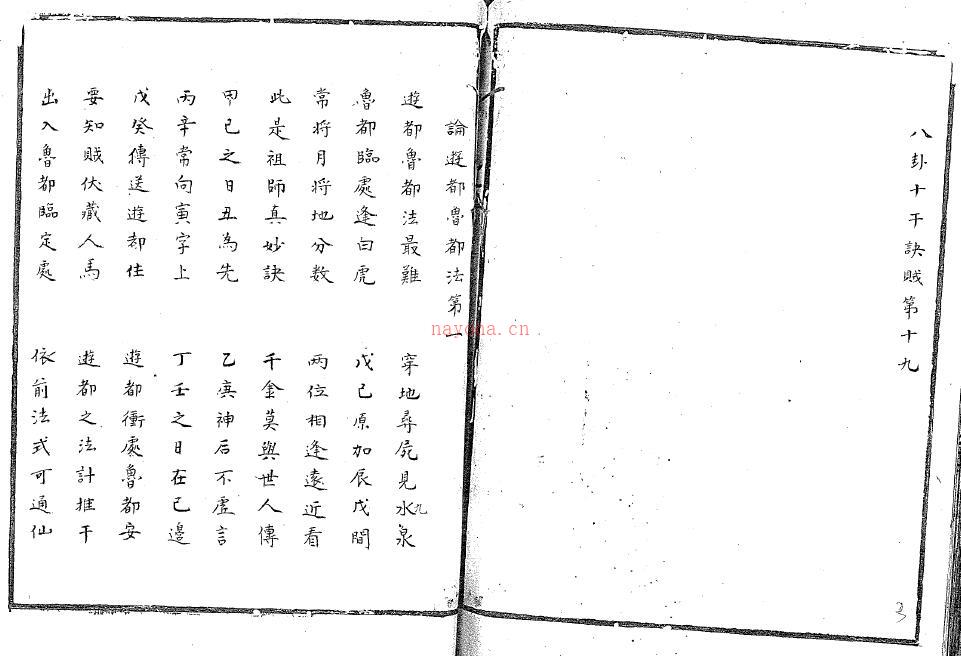 八卦十干訣賊第十九
3
論遊都魯都法第一
遊都魯都法最難 穿地尋屍見水泉
九
魯都臨處逢白虎 戊己原加辰戌間
常將月將地分數 兩位相逢遠近看
此是祖師真妙訣 千金莫與世人傳
甲己之日丑為先 乙庚神后不虛言
丙辛常向寅字上 丁壬之日在巳邊
戊癸傳送遊都住 遊都衝處魯都安
要知賊伏藏人馬 遊都之法計推干
出入魯都臨定處 依前法式可通仙
nayona.cn